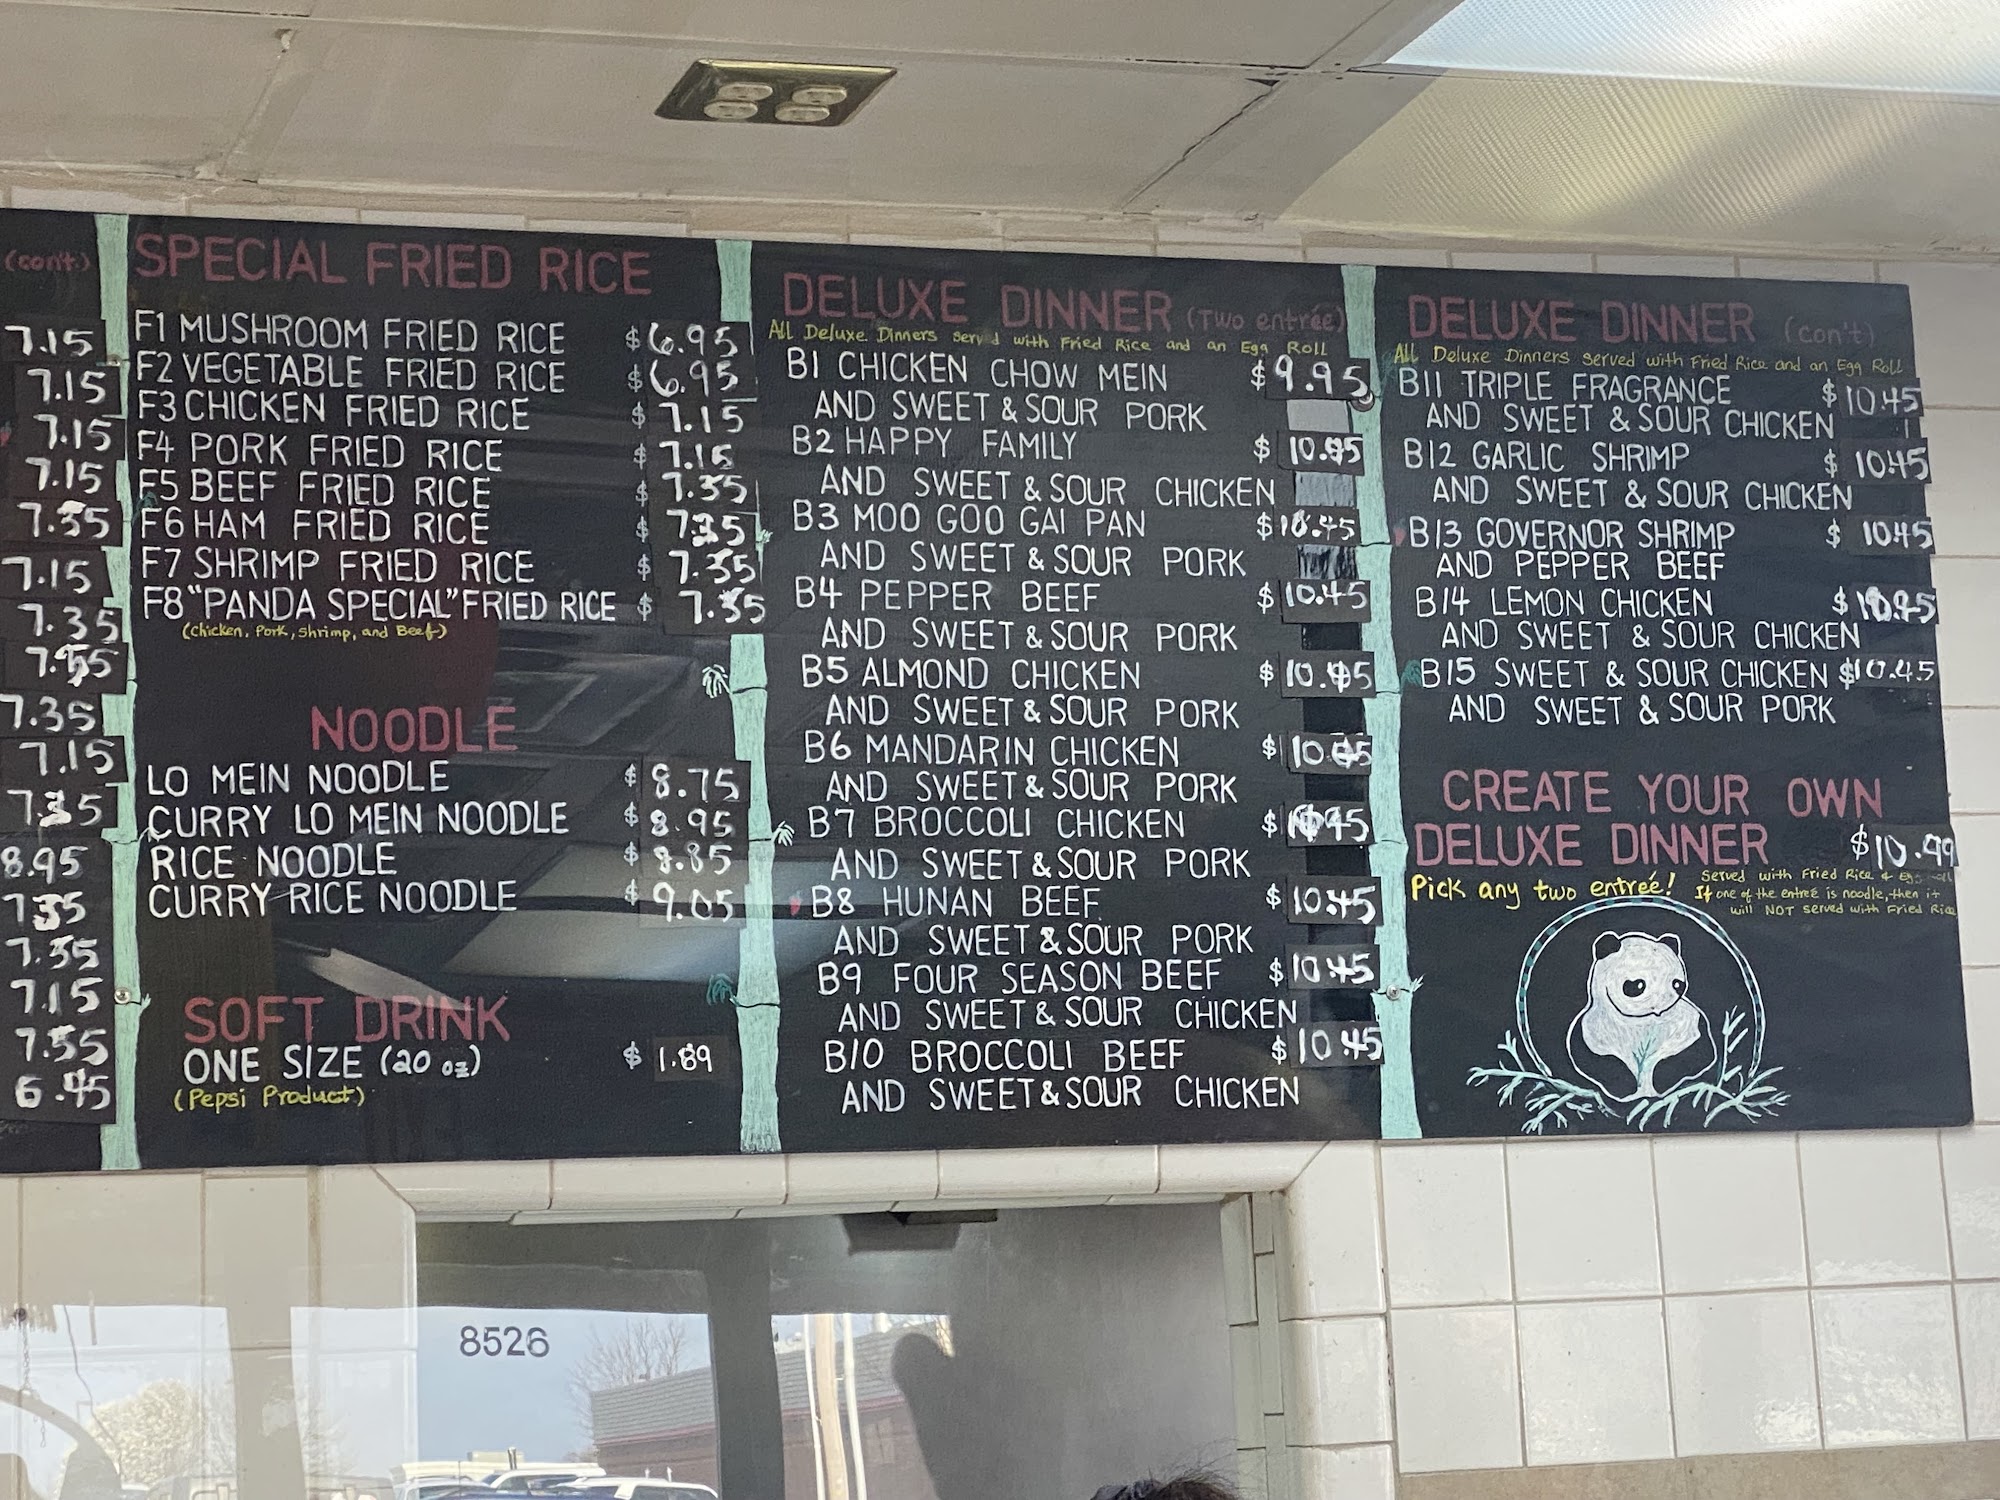 (con't.)
7.15
7.15
7.15
7.15
7.35
7.15
7.35
7.35
7.15
7.35
8.95
7.35
7.35
7.15
7.55
6.45
SPECIAL FRIED RICE
F1 MUSHROOM FRIED RICE $6.95
F2 VEGETABLE FRIED RICE $6.95
F3 CHICKEN FRIED RICE $7.15
F4 PORK FRIED RICE $7.15
F5 BEEF FRIED RICE $7.35
F6 HAM FRIED RICE 7.35
F7 SHRIMP FRIED RICE $7.35
F8 "PANDA SPECIAL" FRIED RICE $7.35
(Chicken, Pork, Shrimp, and Beef)
NOODLE
LO MEIN NOODLE $8.75
CURRY LO MEIN NOODLE $8.95
RICE NOODLE $8.85
CURRY RICE NOODLE $9.05
SOFT DRINK
ONE SIZE (20 oz) $1.89
(Pepsi Product)
DELUXE DINNER (Two entrée)
All Deluxe Dinners served with Fried Rice and an Egg Roll
B1 CHICKEN CHOW MEIN $9.95
AND SWEET & SOUR PORK
B2 HAPPY FAMILY $
AND SWEET & SOUR CHICKEN
B3 MOO GOO GAI PAN $10.45
AND SWEET & SOUR PORK
B4 PEPPER BEEF $10.45
AND SWEET & SOUR PORK
B5 ALMOND CHICKEN $
AND SWEET & SOUR PORK
B6 MANDARIN CHICKEN $
AND SWEET & SOUR PORK
B7 BROCCOLI CHICKEN $
AND SWEET & SOUR PORK
B8 HUNAN BEEF $10.45
AND SWEET & SOUR PORK
B9 FOUR SEASON BEEF $10.45
AND SWEET & SOUR CHICKEN
B10 BROCCOLI BEEF $10.45
AND SWEET & SOUR CHICKEN
DELUXE DINNER (con't)
All Deluxe Dinners served with Fried Rice and an Egg Roll
B11 TRIPLE FRAGRANCE $10.45
AND SWEET & SOUR CHICKEN
B12 GARLIC SHRIMP $10.45
AND SWEET & SOUR CHICKEN
B13 GOVERNOR SHRIMP $10.45
AND PEPPER BEEF
B14 LEMON CHICKEN $
AND SWEET & SOUR CHICKEN
B15 SWEET & SOUR CHICKEN $10.45
AND SWEET & SOUR PORK
CREATE YOUR OWN
DELUXE DINNER $10.99
Pick any two entreé! Served with Fried Rice & Egg Roll
If one of the entreé is noodle, then it
will NOT served with Fried Rice
8526